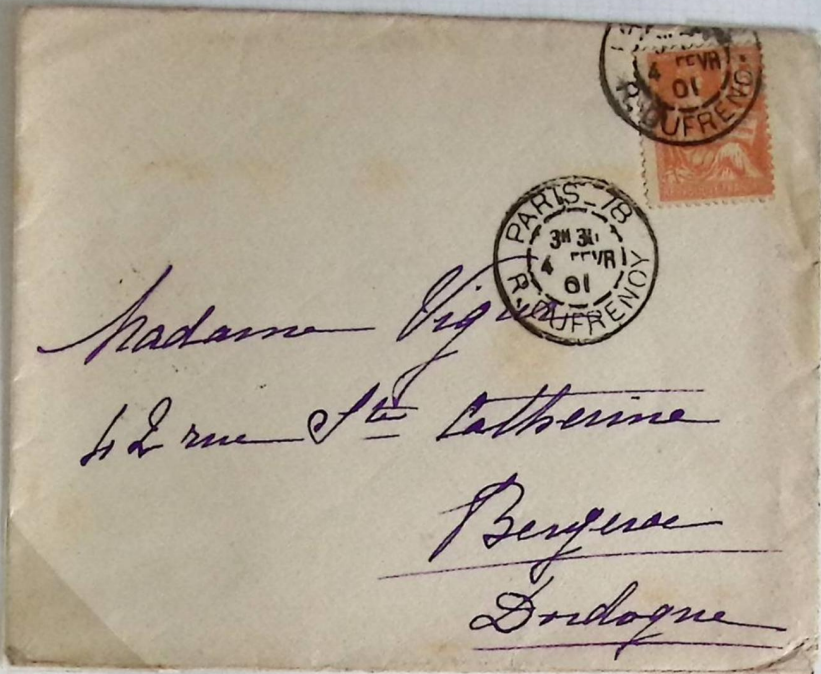 4 FEVR
01
R. DUFRENOY
PARIS_78
3H 31
4 FEVR
01
R. DUFRENOY
Madame
42 rue Ste Catherine
Bergerac
Dordogne